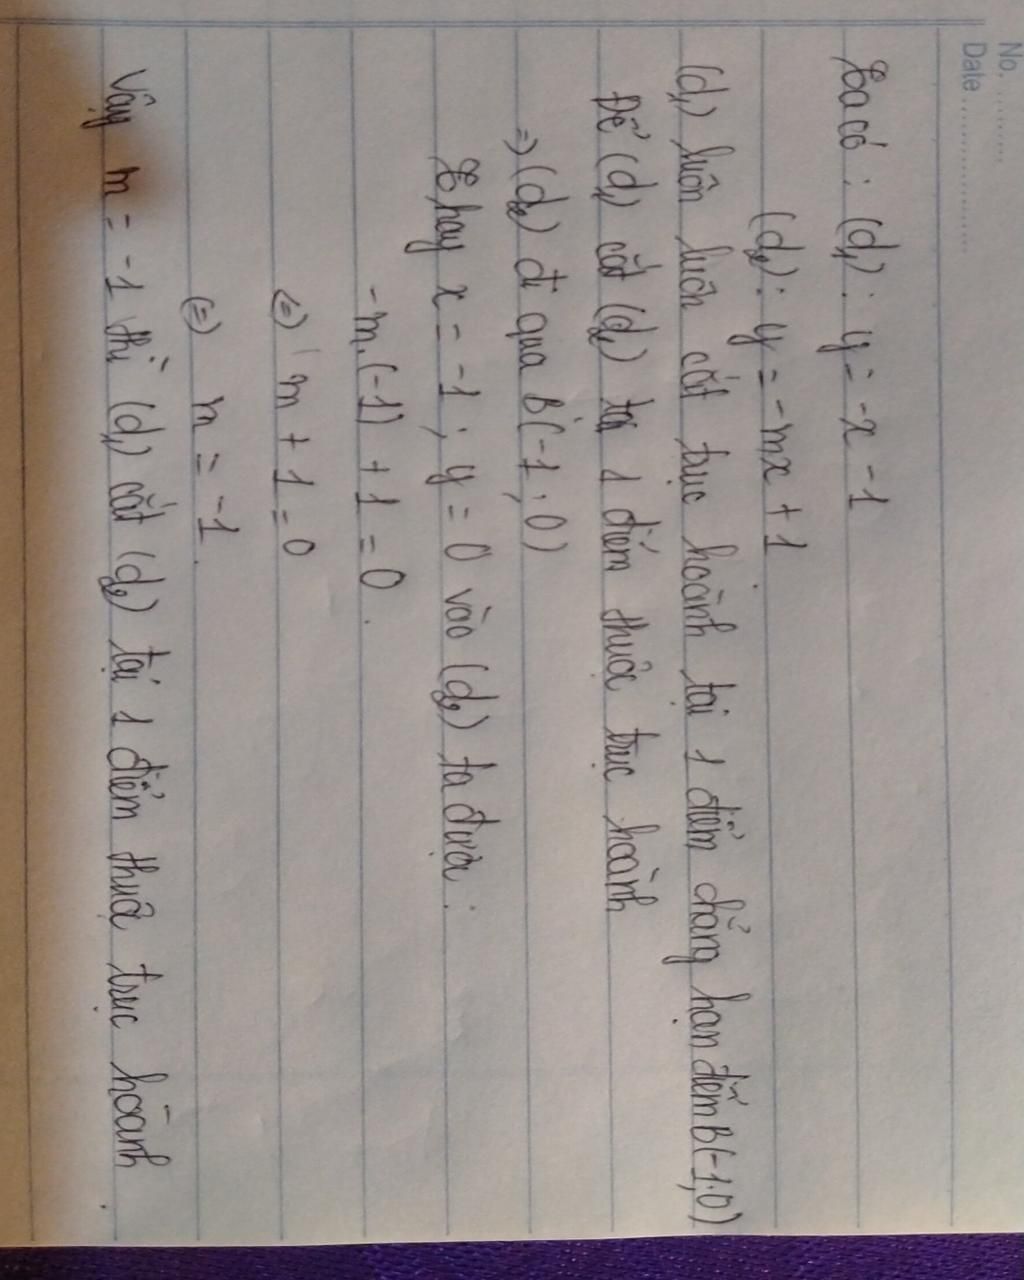 No. ..........
Date ......................
Ta có : (d₁) : y = -x - 1
(d₂) : y = -mx + 1
(d₁) luôn luôn cắt trục hoành tại 1 điểm chẳng hạn điểm B(-1;0)
Để (d₁) cắt (d₂) tại 1 điểm thuộc trục hoành
=> (d₂) đi qua B(-1;0)
Thay x = -1 ; y = 0 vào (d₂) ta được :
-m.(-1) + 1 = 0.
(=) m + 1 = 0
(=) m = -1.
Vậy m = -1 thì (d₁) cắt (d₂) tại 1 điểm thuộc trục hoành.